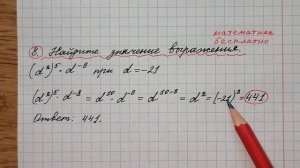 математика
бесплатно
8. Найдите значение выражения
(d²)⁵ · d⁻⁸ при d = -21
(d²)⁵ · d⁻⁸ = d¹⁰ · d⁻⁸ = d¹⁰⁻⁸ = d² = (-21)² = 441
Ответ: 441.